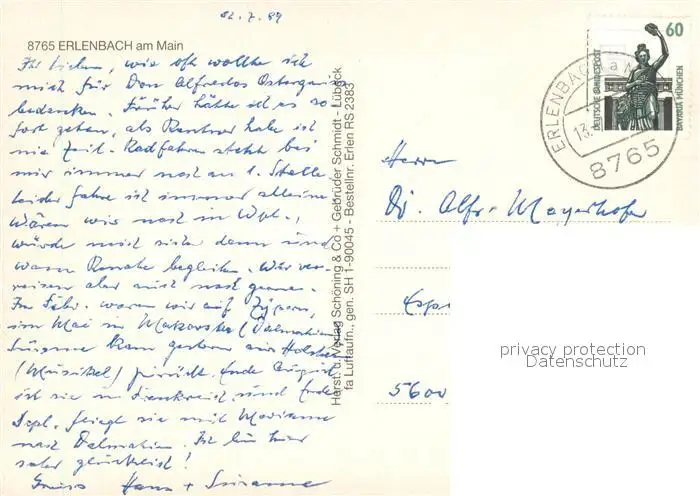 12.7.89
8765 ERLENBACH am Main
Ihr Lieben, wie oft wollte ich
mich für Don Alfredos Ostergruß
bedanken. Früher hätte ich es so
fort getan, als Rentner habe ich
nie Zeit. Radfahren steht bei
mir immer noch an 1. Stelle
leider fahre ich immer alleine
Wären wir noch in Wpt.,
würde mich sicher dann und
wann Renate begleiten. Wir ver-
reisen aber auch noch gerne.
Im Febr. waren wir auf Zypern,
im Mai in Makarska (Dalmatien
Susanne kam gestern aus Holstein
zurück. Ende August
ist sie in Frankreich und Ende
Sept. fliegt sie mit Marianne
nach Dalmatien. Ich bin hier
sehr glücklich!
Gruss Hans + Susanne
Herst. u. Verlag Schöning & Co + Gebrüder Schmidt - Lübeck
fa Luftaufn., gen. SH 1-90045 - Bestellnr. Erlen RS 2383
60
DEUTSCHE BUNDESPOST
BAVARIA MÜNCHEN
ERLENBACH a M
13.
8765
Herrn
Alfr. Mayerhofer
5600
privacy protection
Datenschutz